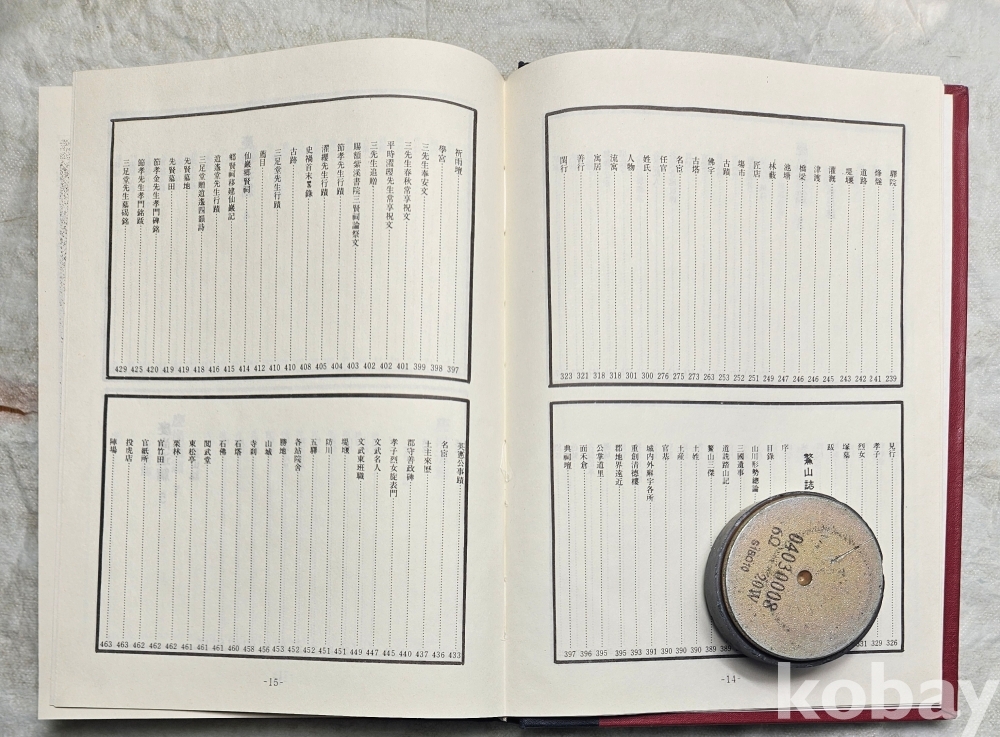 驛院 239
烽燧 241
道路 242
堤堰 243
灌漑 245
津渡 246
橋梁 246
池塘 247
林藪 249
匠店 251
場市 252
古蹟 253
佛宇 263
古塔 273
名宦 275
任官 276
姓氏 300
人物 301
流寓 318
寓居 318
善行 321
閨行 323
見行 326
孝子 329
烈女 331
塚墓
跋
鷲山誌
序
目錄
山川形勢總論
三國遺事
道詵踏山記
鷲山三傑 389
土姓 390
土産 390
官基 390
城内外廨宇各所 391
重創清德樓 393
郡地界遠近 395
公掌道里 395
而禾倉 396
典祠壇 397
-14-
祈雨壇 397
學宮 398
三先生奉安文 399
三先生春秋常享祝文 401
平時濯纓先生常享祝文 402
三先生追贈 402
賜額紫溪書院三賢祠諭祭文 403
節孝先生行蹟 404
濯纓先生行蹟 405
史禍首末事錄 408
古跡 410
三足堂先生行蹟 410
舊目 412
仙巖鄕賢祠 414
鄕賢祠移建仙巖記 415
逍遙堂先生行蹟 416
三足堂贈逍遙四韻詩 418
先賢墓地 419
先賢墓田 419
節孝金先生孝門碑銘 420
節孝先生孝門銘跋 425
三足堂先生墓碣銘 429
英憲公事蹟 433
名宦 436
土主來歷 437
郡守善政碑 440
孝子烈女旌表門 445
文武名人 447
文武東班職 449
堤堰 451
防川 451
五驛 452
各站院舍 452
勝地 453
山城 456
寺刹 458
石塔 460
石佛 461
閱武堂 461
東松亭 461
栗林 462
官竹田 462
官紙所 462
投虎店 463
陣場 463
-15-
04030008
6Ω
20W
kobay